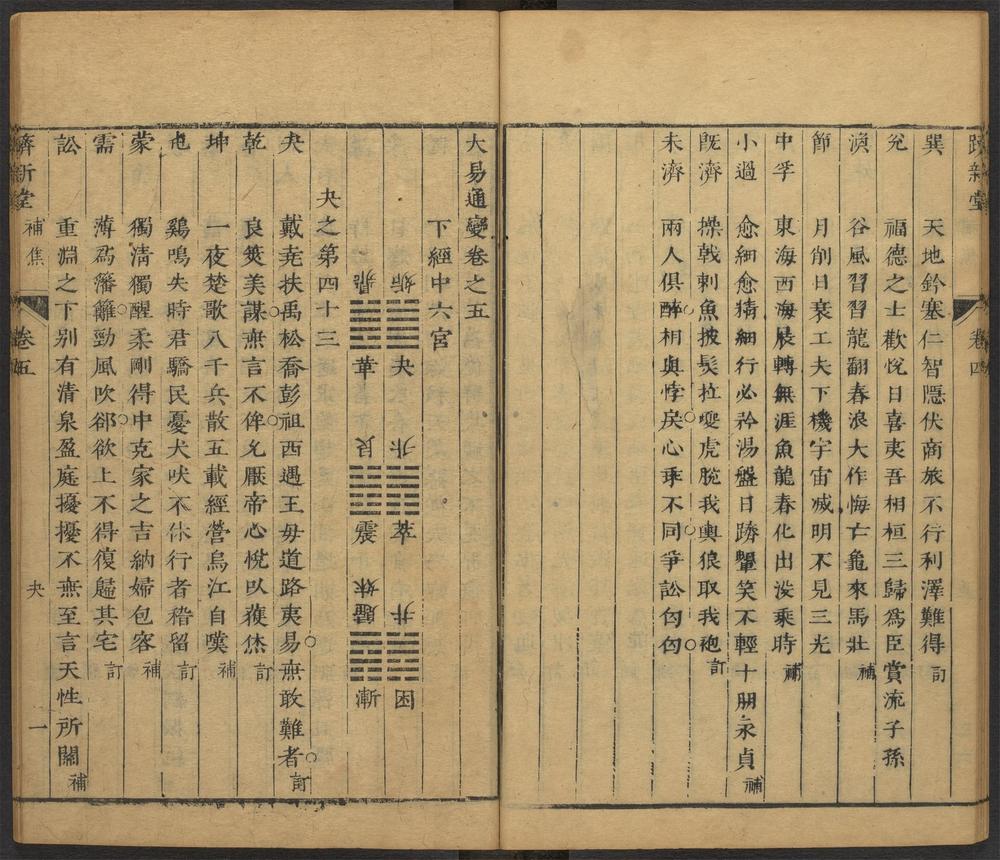 巽　天地鈐塞仁智隱伏商旅不行利澤難得訂
兌　福德之士歡悅日喜夷吾相桓三歸爲臣賞流子孫
渙　谷風習習龍翻春浪大作悔亡龜來馬壯補
節　月削日衰工夫下機宇宙滅明不見三光
中孚　東海西海展轉無涯魚龍春化出沒乘時補
小過　愈細愈精細行必矜湯盤日躋顰笑不輕十朋永貞補
旣濟　操戟刺魚披髮拉䖑虎脫我輿狼取我袍訂
未濟　兩人俱醉相與悖戾心乖不同爭訟匈匈
卷四
大易通變卷之五
下經中六宮
姤　夬　升　萃　井　困
鼎　革　艮　震　歸妹　漸
夬之第四十三
夬　戴堯扶禹松喬彭祖西遇王母道路夷易無敢難者訂
乾　良筴美謀無言不俾允厭帝心悅以獲休訂
坤　一夜楚歌八千兵散五載經營烏江自嘆補
屯　鷄鳴失時君驕民憂犬吠不休行者稽留訂
蒙　獨淸獨醒柔剛得中克家之吉納婦包容補
需　薄爲藩籬勁風吹郤欲上不得復歸其宅訂
訟　重淵之下別有清泉盈庭擾擾不無至言天性所關補
躋新堂　補焦　卷五　夬　一